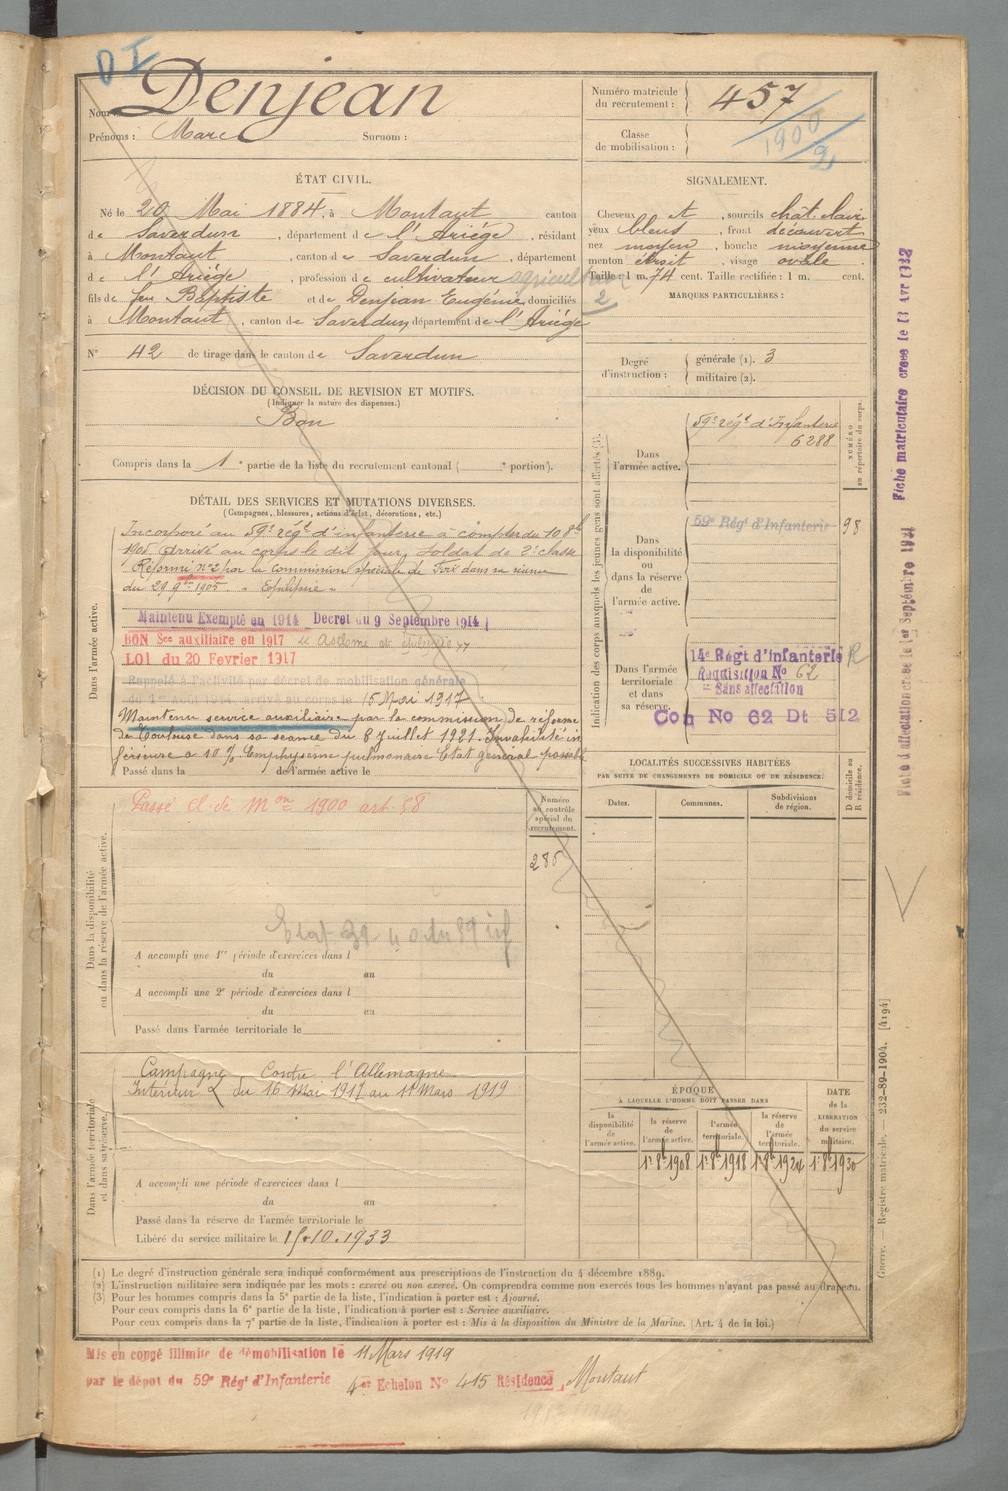 D I
Nom : Denjean
Prénoms : Marc Surnom :
Numéro matricule du recrutement : 457
Classe de mobilisation : 1900
2
ÉTAT CIVIL.
Né le 20 Mai 1884, à Montaut canton
de Saverdun, département de l'Ariége, résidant
à Montaut, canton de Saverdun, département
de l'Ariége, profession de cultivateur
2
fils de feu Baptiste et de Denjean Eugénie, domiciliés
à Montaut, canton de Saverdun, département de l'Ariége
N° 42 de tirage dans le canton de Saverdun
SIGNALEMENT.
Cheveux et, sourcils chât. clair
yeux bleus, front découvert
nez moyen, bouche moyenne
menton étroit, visage ovale.
Taille : 1 m. 74 cent. Taille rectifiée : 1 m. cent.
MARQUES PARTICULIÈRES :
Degré d'instruction : générale (1). 3
militaire (2).
DÉCISION DU CONSEIL DE REVISION ET MOTIFS.
(Indiquer la nature des dispenses.)
Bon
Compris dans la 1e partie de la liste du recrutement cantonal ( e portion).
DÉTAIL DES SERVICES ET MUTATIONS DIVERSES.
(Campagnes, blessures, actions d'éclat, décorations, etc.)
Dans l'armée active.
Incorporé au 59e régt d'infanterie à compter du 10 8bre
1905. Arrivé au corps le dit jour, soldat de 2e classe
Réformé n°2 par la Commission spéciale de Foix dans sa séance
du 29 9bre 1905. "Epilepsie"
Maintenu Exempté en 1914 Decret du 9 Septembre 1914
BON Sce auxiliaire en 1917
LOI du 20 Fevrier 1917
Rappelé à l'activité par décret de mobilisation générale
du 1er Août 1914 arrivé au corps le 15 Mai 1917
Maintenu service auxiliaire par la commission de réforme
de Toulouse dans sa séance du 8 juillet 1921. Invalidité in
férieure à 10 % Emphysème pulmonaire Etat général passable
Passé dans la de l'armée active le
Indication des corps auxquels les jeunes gens sont affectés (3).
NUMÉRO au répertoire du corps.
Dans l'armée active. 59e régt d'Infanterie
6288
Dans la disponibilité ou dans la réserve de l'armée active.
59e Régt d'Infanterie 98
Dans l'armée territoriale et dans sa réserve.
14e Régt d'infanterie R
Requisition No 62
Sans affectation
Con No 62 Dt 512
LOCALITÉS SUCCESSIVES HABITÉES
PAR SUITE DE CHANGEMENTS DE DOMICILE OU DE RÉSIDENCE.
Dates. Communes. Subdivisions de région. D domicile ou R résidence.
Dans la disponibilité ou dans la réserve de l'armée active.
Passé cl. de Mon 1900 art. 58
Numéro au contrôle spécial du recrutement.
A accompli une 1re période d'exercices dans l
du au
A accompli une 2e période d'exercices dans l
du au
Passé dans l'armée territoriale le
Dans l'armée territoriale et dans sa réserve.
Campagne Contre l'Allemagne
Intérieur du 16 Mai 1917 au 11 Mars 1919
A accompli une période d'exercices dans l
du au
Passé dans la réserve de l'armée territoriale le
Libéré du service militaire le 15.10.1933
ÉPOQUE
A LAQUELLE L'HOMME DOIT PASSER DANS
la disponibilité de l'armée active. la réserve de l'armée active. l'armée territoriale. la réserve de l'armée territoriale. DATE de la LIBÉRATION du service militaire.
1r 8b 1908 1r 8b 1918 1r 8b 1924 1r 8b 1930
(1) Le degré d'instruction générale sera indiqué conformément aux prescriptions de l'instruction du 4 décembre 1889.
(2) L'instruction militaire sera indiquée par les mots : exercé ou non exercé. On comprendra comme non exercés tous les hommes n'ayant pas passé au drapeau.
(3) Pour les hommes compris dans la 5e partie de la liste, l'indication à porter est : Ajourné.
Pour ceux compris dans la 6e partie de la liste, l'indication à porter est : Service auxiliaire.
Pour ceux compris dans la 7e partie de la liste, l'indication à porter est : Mis à la disposition du Ministre de la Marine. (Art. 4 de la loi.)
Mis en congé illimité de démobilisation le 11 Mars 1919
par le dépôt du 59e Régt d'Infanterie 4er Echelon No 415 Résidence Montaut
Guerre. — Registre matricule. — 232-89-1904. [4194]
Fiche matriculaire créée le
Septembre